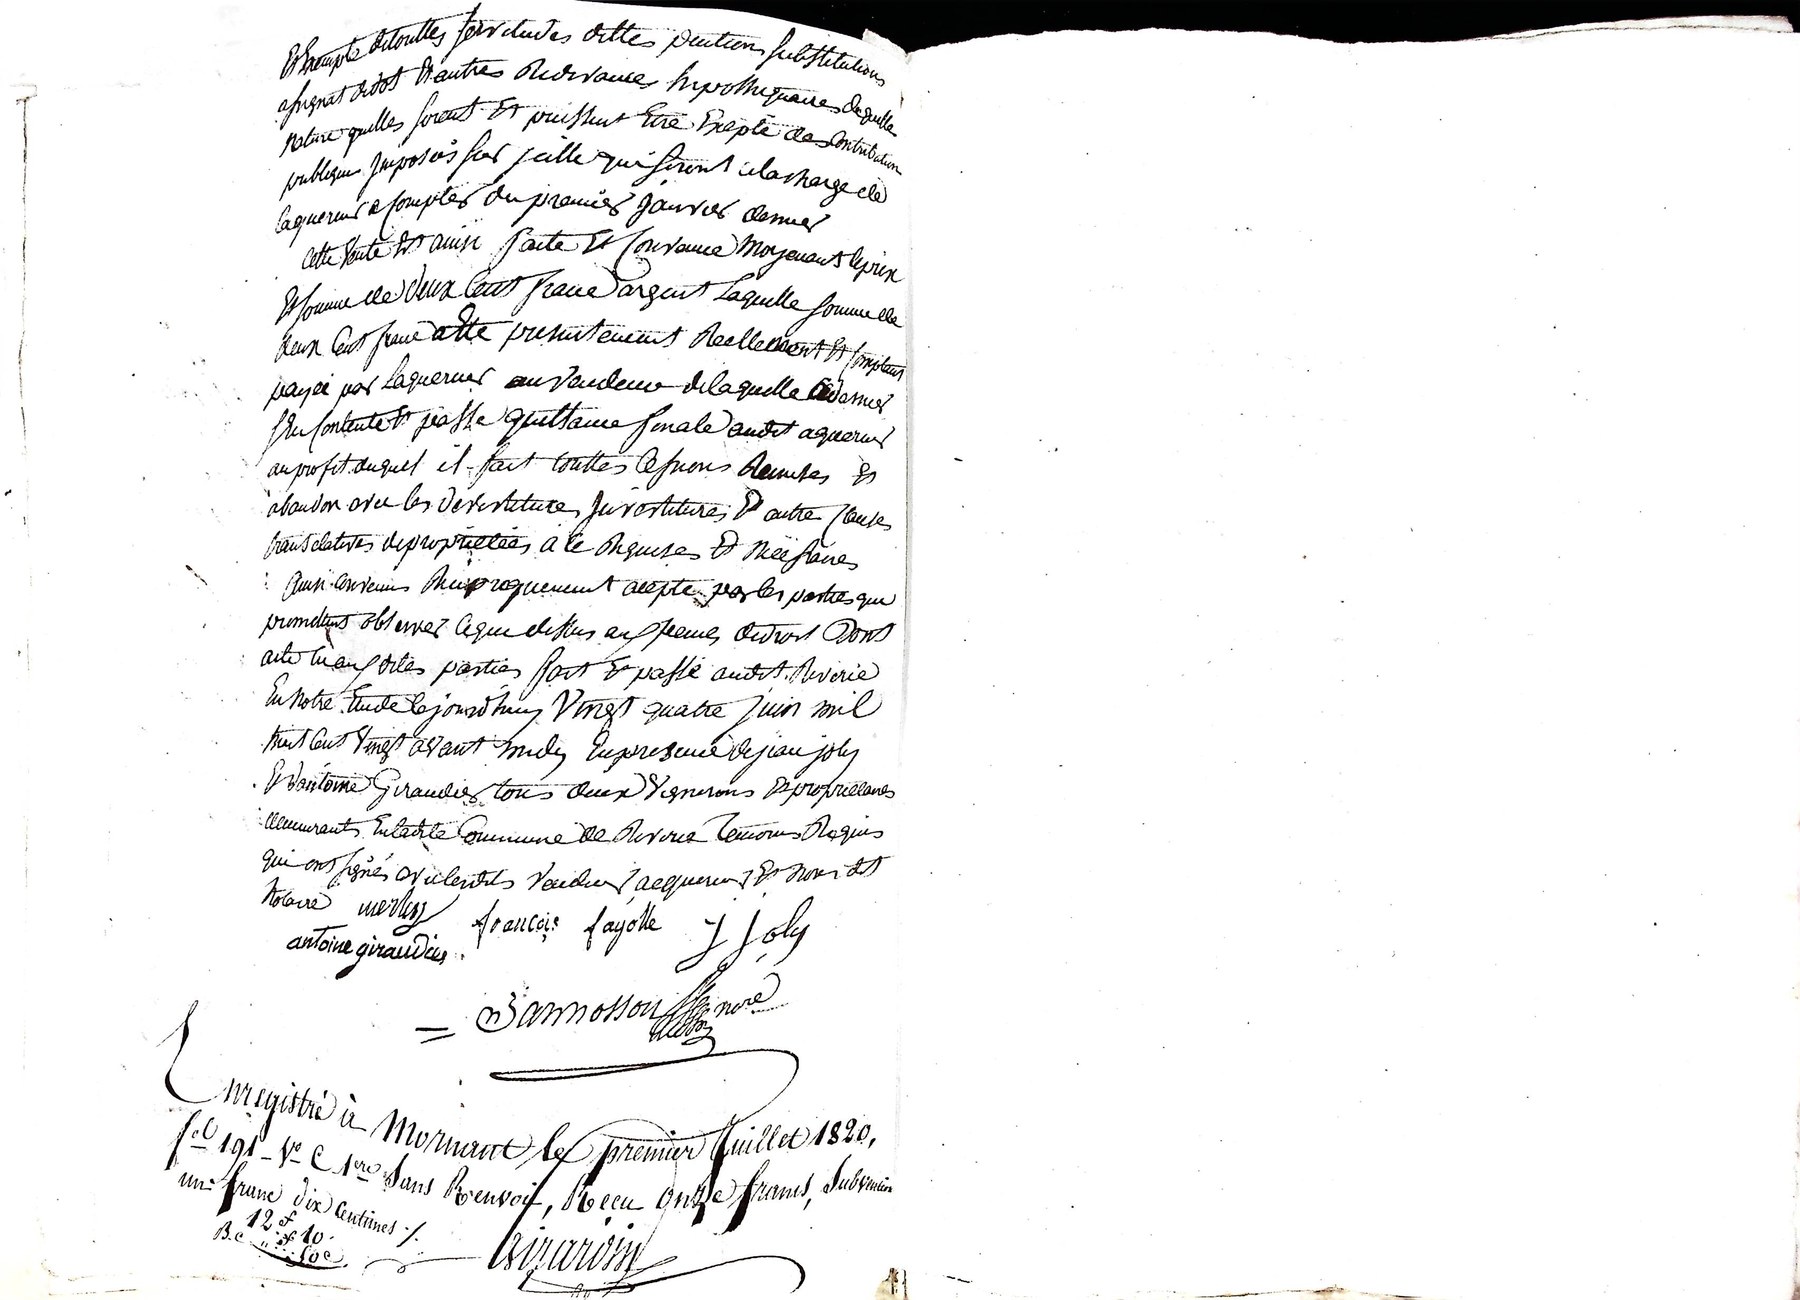 Et Exempte detouttes servitudes dittes pention substitutions
assignat dedot Et autres Redevances hipothequaires dequelle
Nature quelles soient Et puissent Etre Exepté des Contribution
publiques Imposées sur jcelle qui seront alacharge de
laquereur a Compter du premier janvier dernier
Cette Vente Est ainsi faite Et Convenue Moyenant leprix
Et somme de deux Cent franc argent Laquelle somme de
deux Cent franc a Ete presentement Reellement Et Comptant
payée par Laquereur au Vendeur delaquelle Cedernier
sen Contente Et passe quittance finale audit aquereur
auprofit duquel il fait touttes Cessions Remises Et
abandon avec les devestitures Investitures Et autre Clauses
translatives depropriétées a ce Requises Et Nécessaires
Ainsi Convenus Reciproquement acepté par les parties qui
promettent observer Ceque dessus aux peines dedroit Dont
acte lu aux dites parties fait Et passé audit Riverie
En Notre Etude Cejourd'huy Vingt quatre juin mil
huit Cent Vingt avant midy Enpresence dejean joly
Et d'antoine Giraudier tous deux Vignerons Et proprietaires
demeurants Enladite Commune de Riverie Temoins Requis
qui ont signés avec lesdits Vendeur, acquereur, Et Nous dit
Notaire
françois fayolle J Joly
antoine giraudier
noré
Enregistré à Mornant le premier Juillet 1820,
fol 191 Vo C 1ere Sans Renvoi, Reçu onze francs, Subvention
un franc dix Centimes ./.
12 f 10
B.c 50 c
Girardin